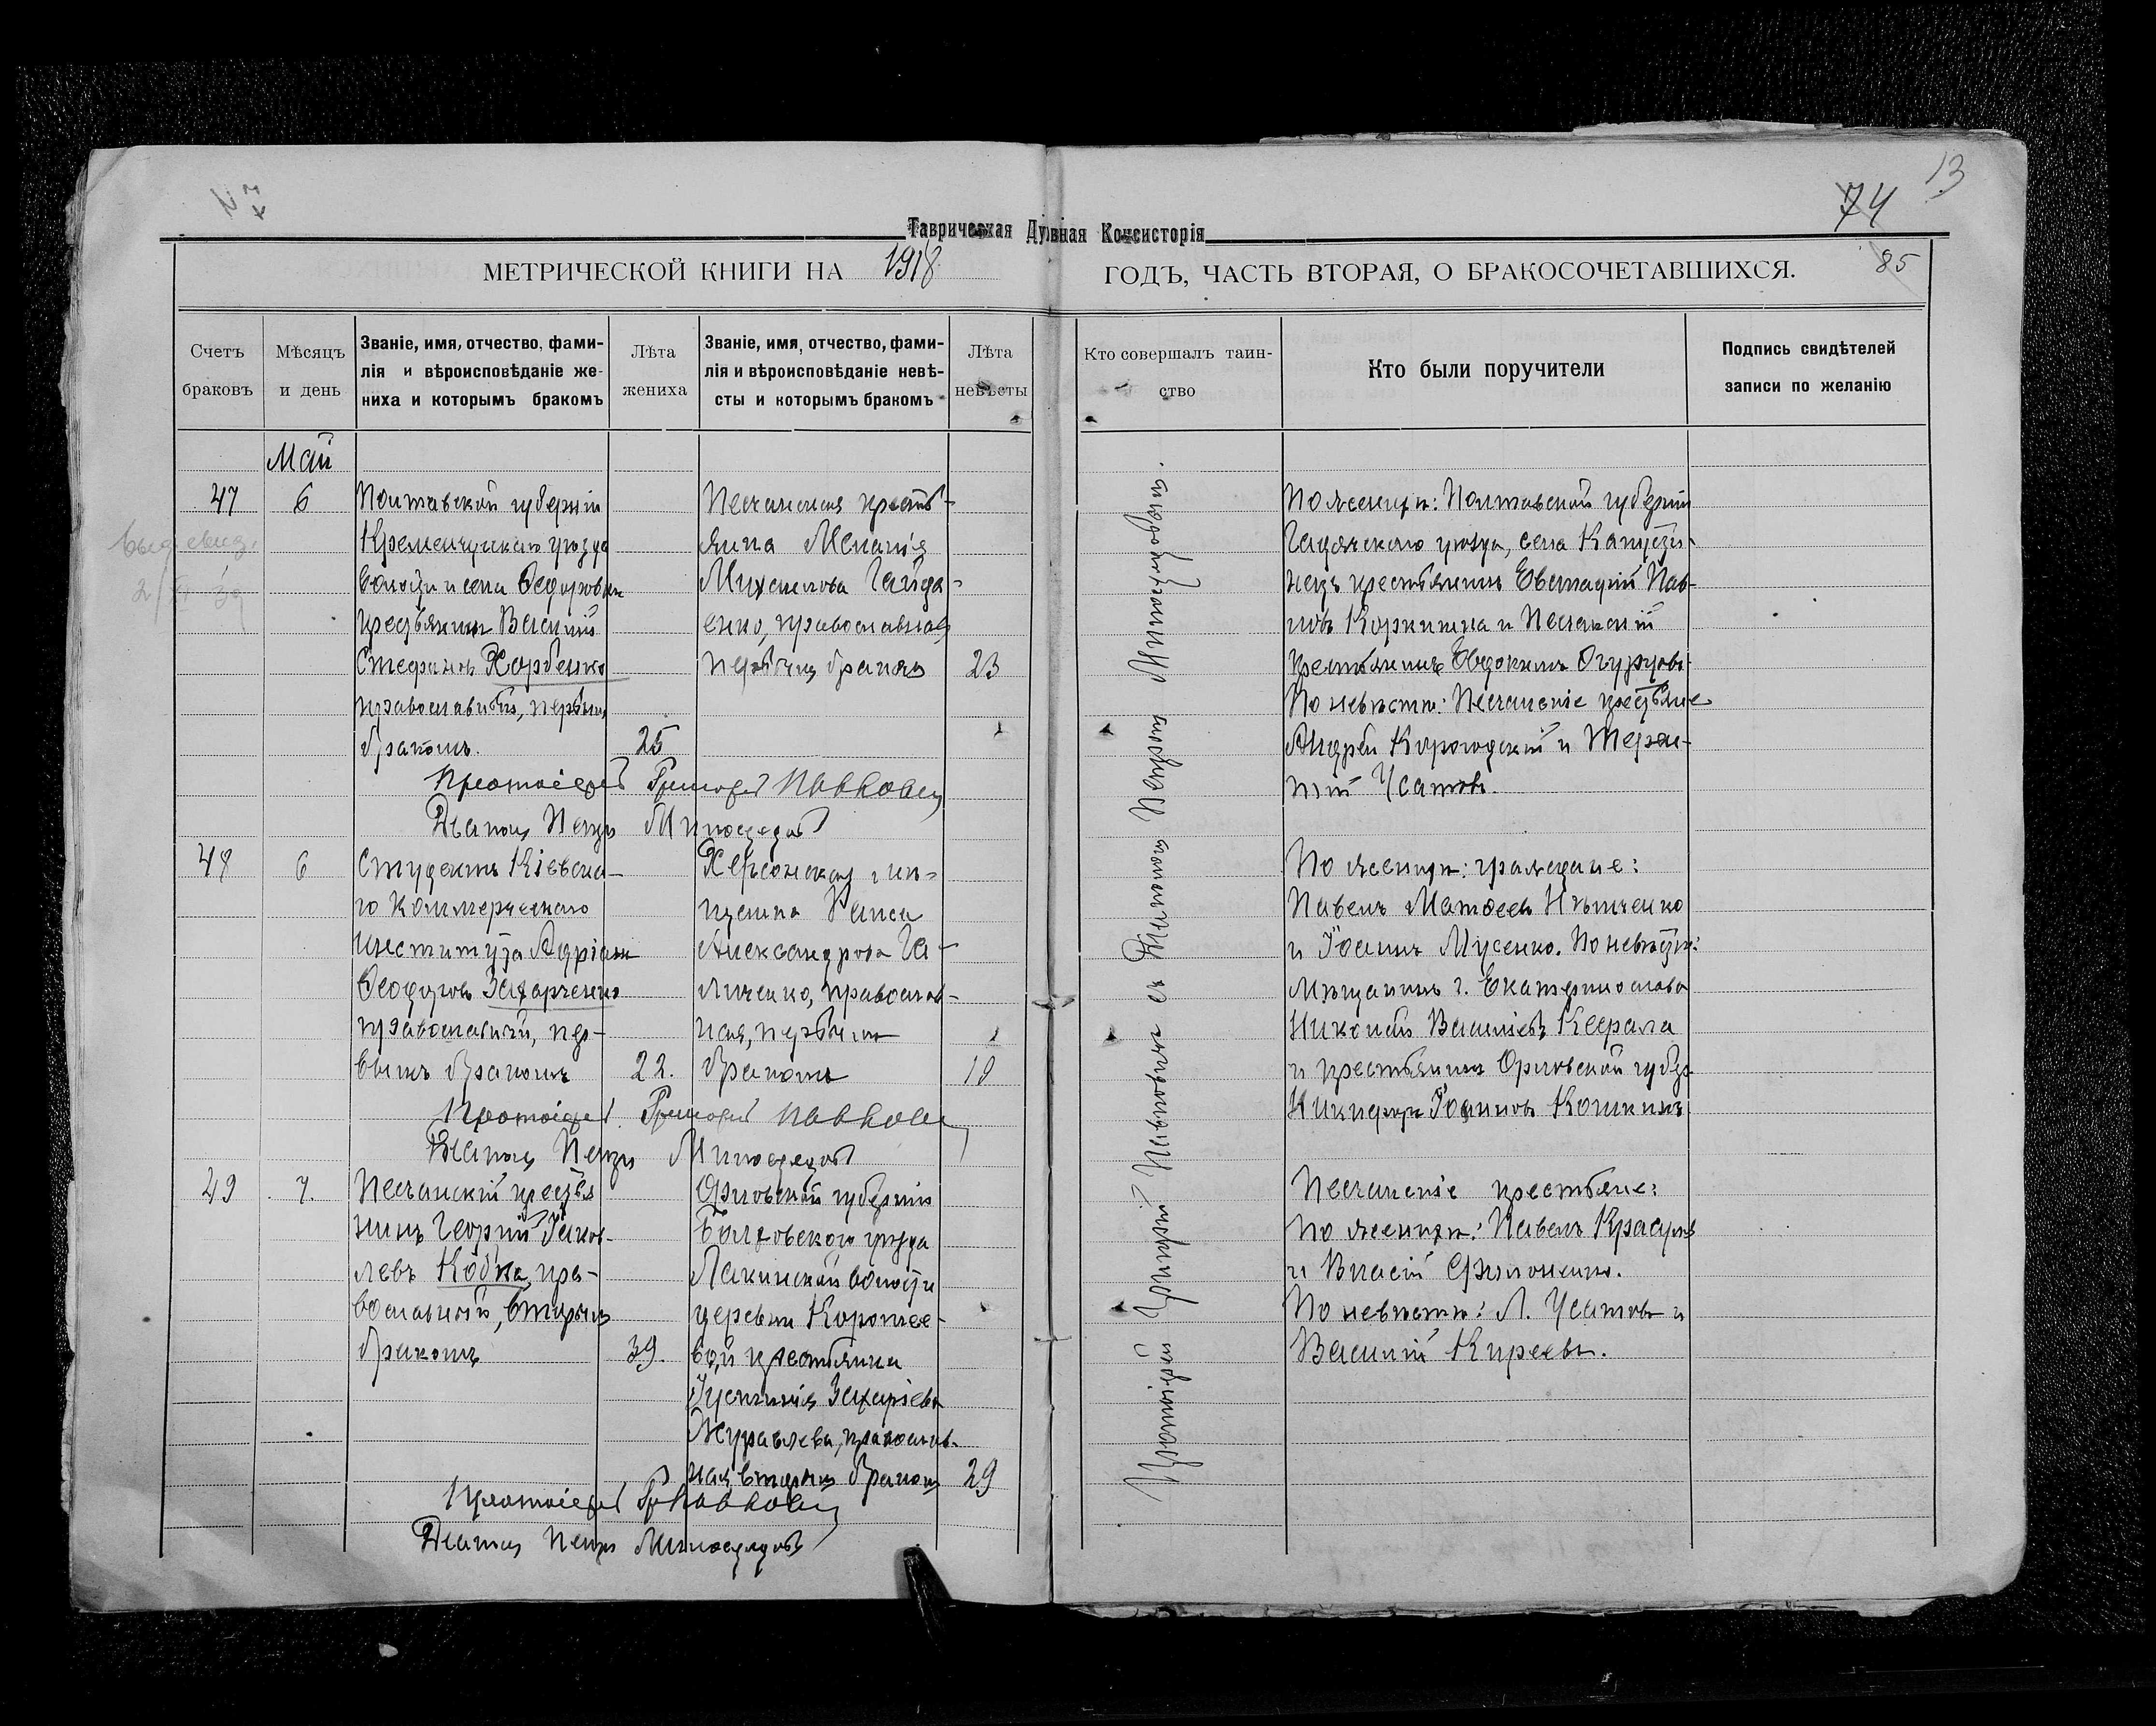 13
74
85
Таврическая Духовная Консисторія
МЕТРИЧЕСКОЙ КНИГИ НА 1918 ГОДЪ, ЧАСТЬ ВТОРАЯ, О БРАКОСОЧЕТАВШИХСЯ.
Счетъ браковъ
Мѣсяцъ и день
Званіе, имя, отчество, фами-
лія и вѣроисповѣданіе же-
ниха и которымъ бракомъ
Лѣта жениха
Званіе, имя, отчество, фами-
лія и вѣроисповѣданіе невѣ-
сты и которымъ бракомъ
Лѣта невѣсты
Кто совершалъ таин-
ство
Кто были поручители
Подпись свидѣтелей
записи по желанію
Май
47
6
Полтавской губерніи
Кременчугскаго уѣзда
волости и села Ѳедоровки
крестьянинъ Василій
Стефановъ Хорбенко
православный, первымъ
бракомъ.
25
Песчанская кресть-
янка Меланія
Михаилова Гайда-
енко, православная
первымъ бракомъ
23
По женихѣ: Полтавской губерніи
Гадячскаго уѣзда, села
крестьянинъ Евстафій Пав-
ловъ и Песчанскій
крестьянинъ Евдокимъ Огурцовъ.
По невѣстѣ: Песчанскіе крестьяне
Андрей и Терен-
тій Усатовъ.
Протоіерей Григорій Павковец
Діаконъ Петръ Милосердовъ
48
6
Студентъ Кіевска-
го Коммерческаго
института Адріанъ
Ѳеодоровъ Захарченко
православный, пер-
вымъ бракомъ
22.
Херсонская мѣ-
щанка Раиса
Александрова Га-
личенко, православ-
ная, первымъ
бракомъ
18
По женихѣ: граждане:
Павелъ Матѳеевъ Нѣмченко
и Іоаннъ Мусенко. По невѣстѣ:
мѣщанинъ г. Екатеринослава
Николай Васильевъ
и крестьянинъ Орловской губер.
Никифоръ Іоанновъ Кошкинъ
Протоіерей Григорій Павковец
Діаконъ Петръ Милосердовъ
49
7.
Песчанскій крестья
нинъ Георгій Іаков-
левъ Кобка, пра-
вославный, вторымъ
бракомъ
39.
Орловской губерніи
Болховского уѣзда
волости
деревни
вой крестьянка
Захаріева
Журавлева, православ-
ная вторымъ бракомъ
29
Песчанскіе крестьяне:
По женихѣ: Павелъ
и Власій Филоненко.
По невѣстѣ: Л. Усатовъ и
Василій Киреевъ.
Протоіерей Гр. Павковец
Діаконъ Петръ Милосердовъ
Протоіерей Григорій Павковец съ Діакономъ Петромъ Милосердовымъ.